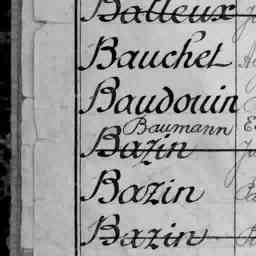 Batteux
Bauchet
Baudouin
Baumann
Bazin
Bazin
Bazin